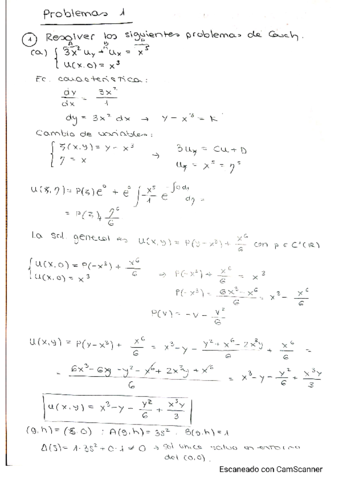 Problemas 1
① Resolver los siguientes problemas de Cauch.
(a) { 3x² uy + ux = x⁵
u(x,0) = x³
Ec. característica:
dy/dx = 3x²/1
dy = 3x² dx → y - x³ = K
Cambio de variables:
{ ξ(x,y) = y - x³
η = x
→ Buη = Cu + D
uη = x⁵ = η⁵
= P(ξ) + η⁶/6
La sol general es u(x,y) = P(y-x³) + x⁶/6 con p ∈ C¹(ℝ)
{ u(x,0) = P(-x³) + x⁶/6
u(x,0) = x³
⇒ P(-x³) + x⁶/6 = x³
P(-x³) = 6x³-x⁶/6 = x³ - x⁶/6
P(v) = -v - v²/6
u(x,y) = P(y-x³) + x⁶/6 = x³-y - y²+x⁶-2x³y/6 + x⁶/6 =
= 6x³-6y-y²-x⁶+2x³y+x⁶/6 = x³-y-y²/6 + x³y/3
u(x,y) = x³-y - y²/6 + x³y/3
(g,h) = (s,0) : A(g,h) = 3s² B(g,h) = 1
Δ(s) = 1·3s² + 0·1 ≠ 0 → sol única salvo en entorno
del (0,0).
Escaneado con CamScanner